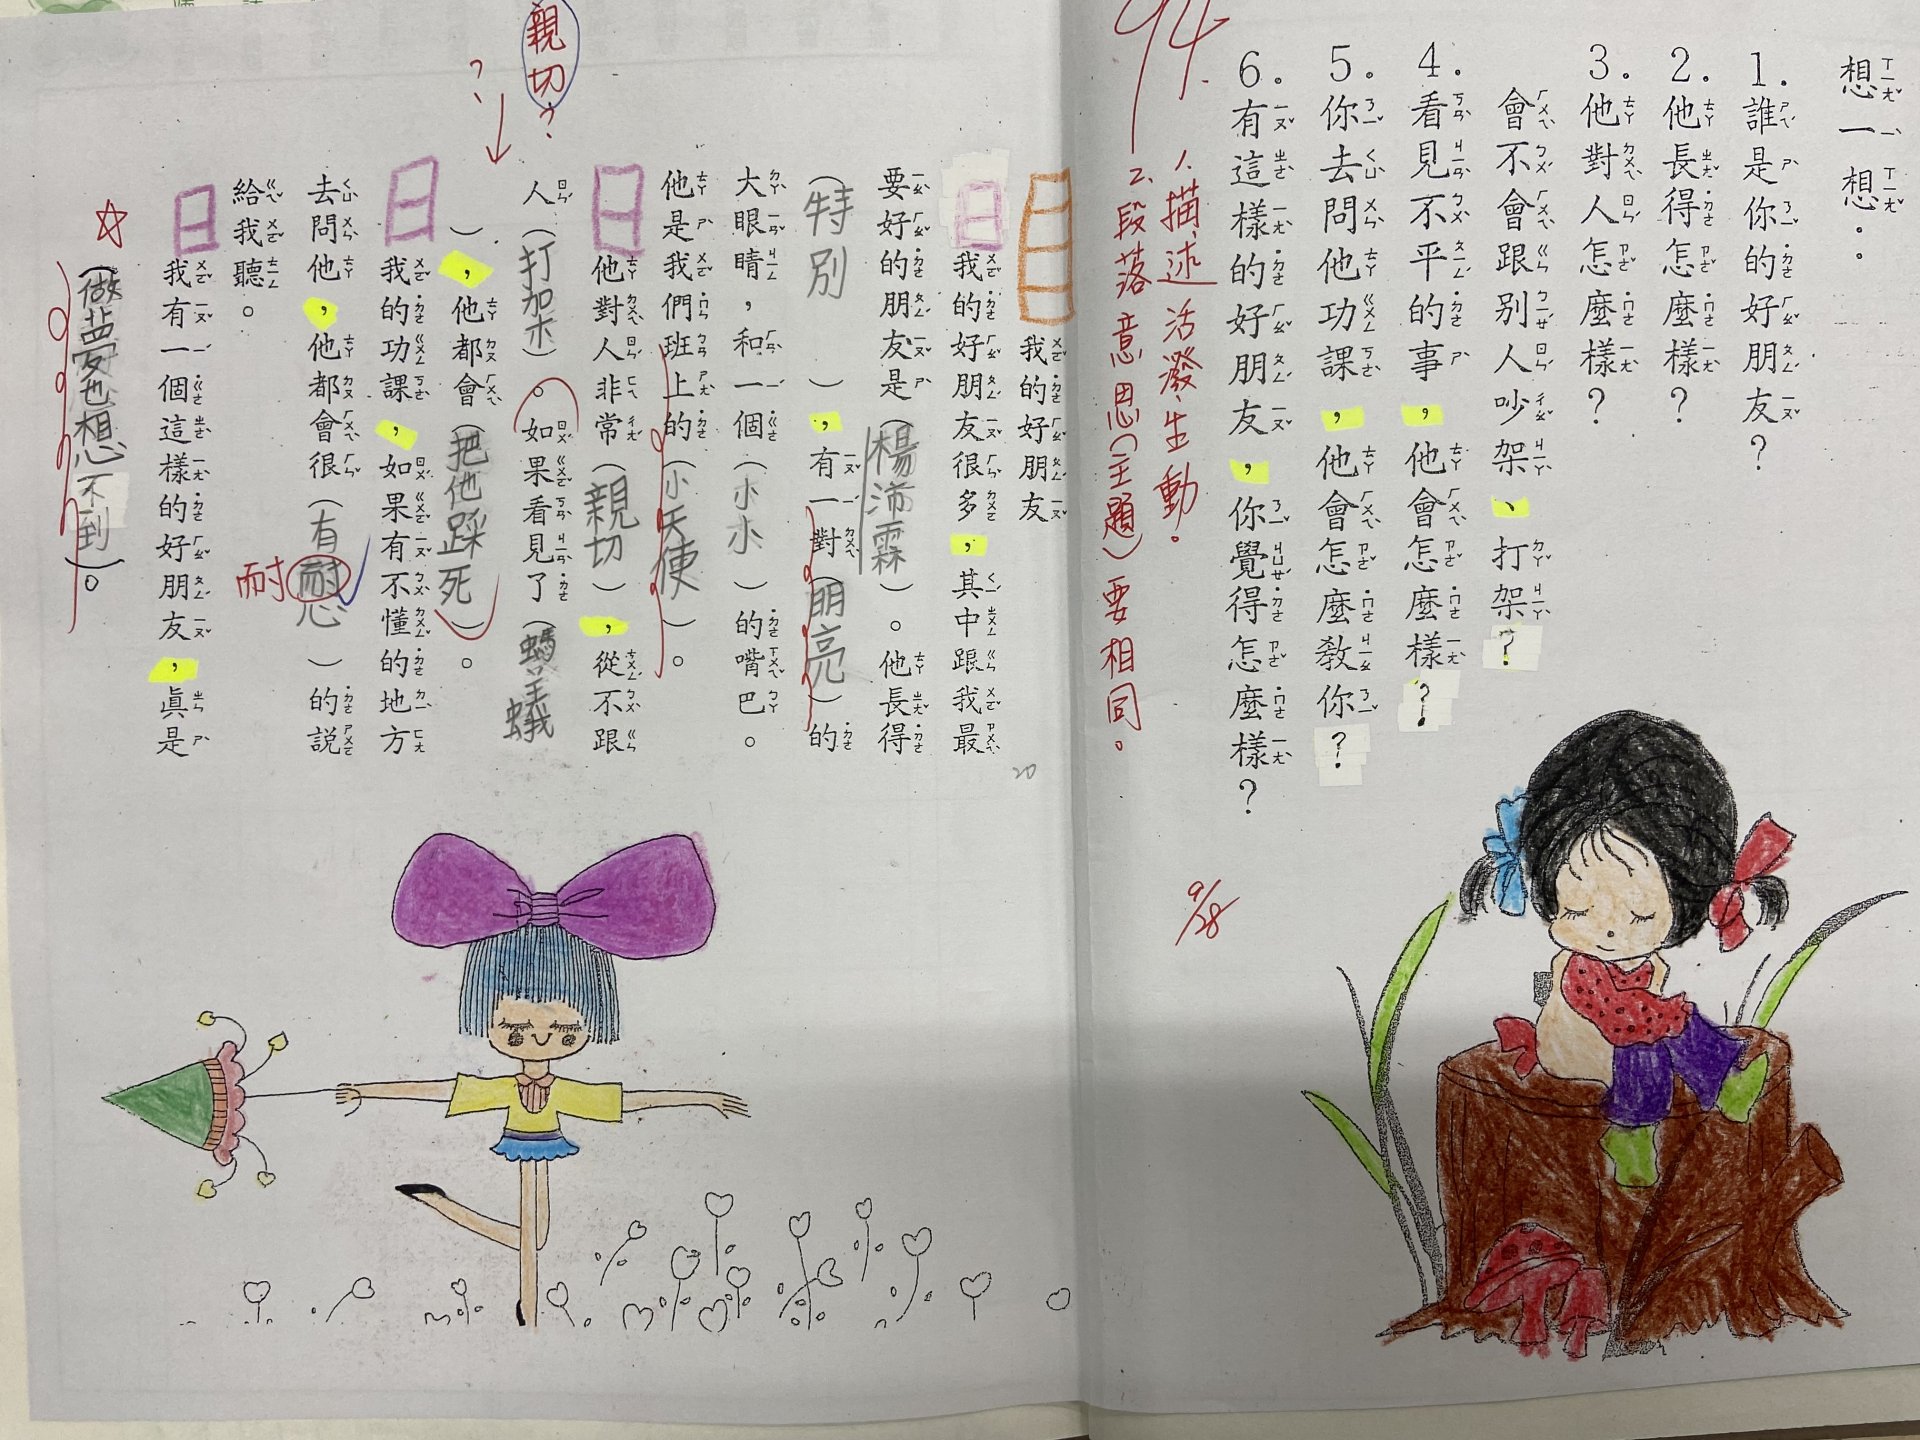 想一想：
1. 誰是你的好朋友？
2. 他長得怎麼樣？
3. 他對人怎麼樣？
會不會跟別人吵架、打架？
4. 看見不平的事，他會怎麼樣？
5. 你去問他功課，他會怎麼教你？
6. 有這樣的好朋友，你覺得怎麼樣？
94
1. 描述活潑、生動。
2. 段落意思(主題)要相同。
9/28
我的好朋友
我的好朋友很多，其中跟我最
要好的朋友是（楊沛霖）。他長得
（特別），有一對（明亮）的
大眼睛，和一個（小小）的嘴巴。
他是我們班上的（小天使）。
他對人非常（親切），從不跟
人（打架）。如果看見了（螞蟻
），他都會（把他踩死）。
親切？
？
我的功課，如果有不懂的地方
去問他，他都會很（有耐心）的說
耐
給我聽。
我有一個這樣的好朋友，真是
（做夢也想不到）。
20